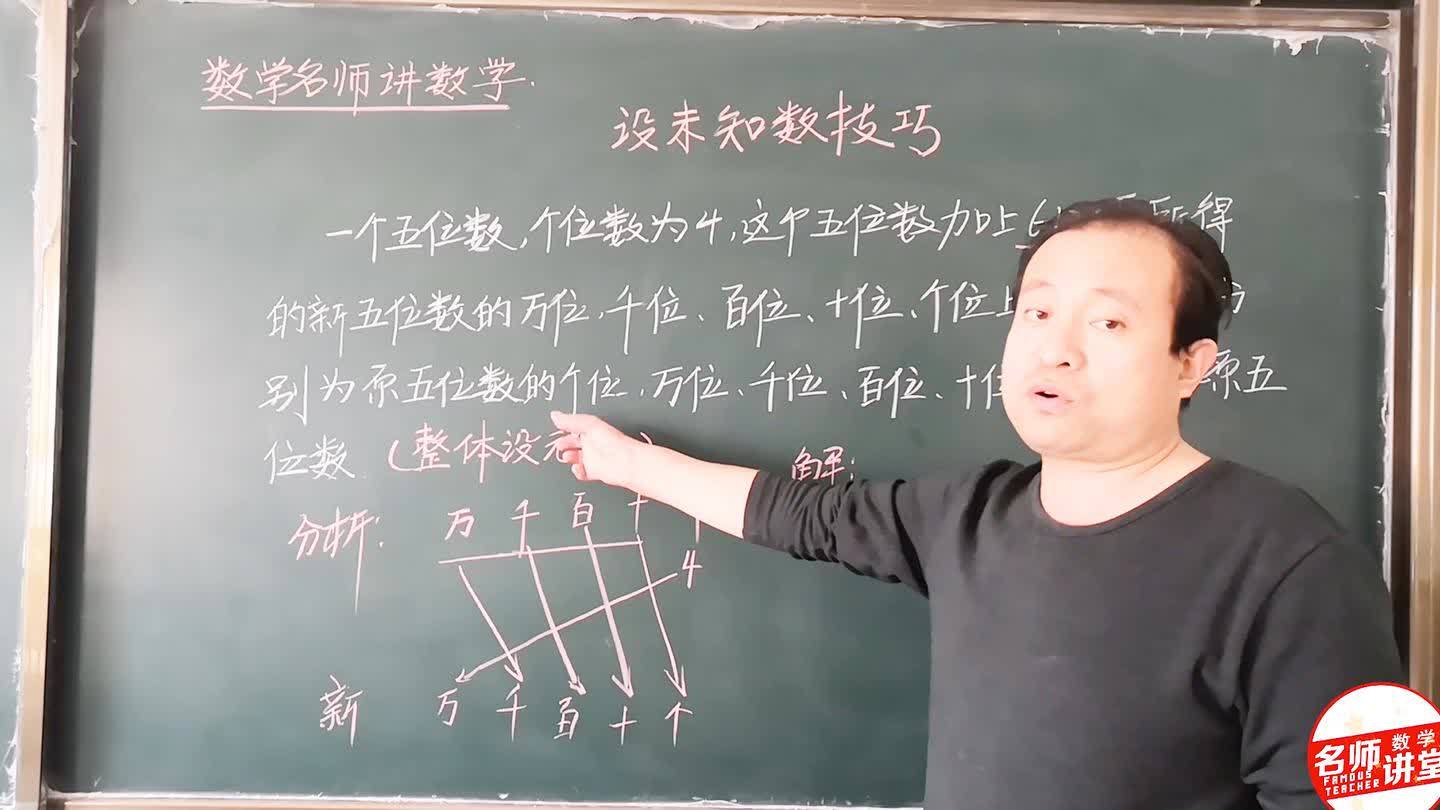 数学名师讲数学.
设未知数技巧
一个五位数,个位数为4,这个五位数加上6 得
的新五位数的万位、千位、百位、十位、个位上
别为原五位数的个位、万位、千位、百位、十位 原五
位数.(整体设元)
解:
分析: 万 千 百 十
4
新 万 千 百 十 个
名师数学讲堂
FAMOUS
TEACHER